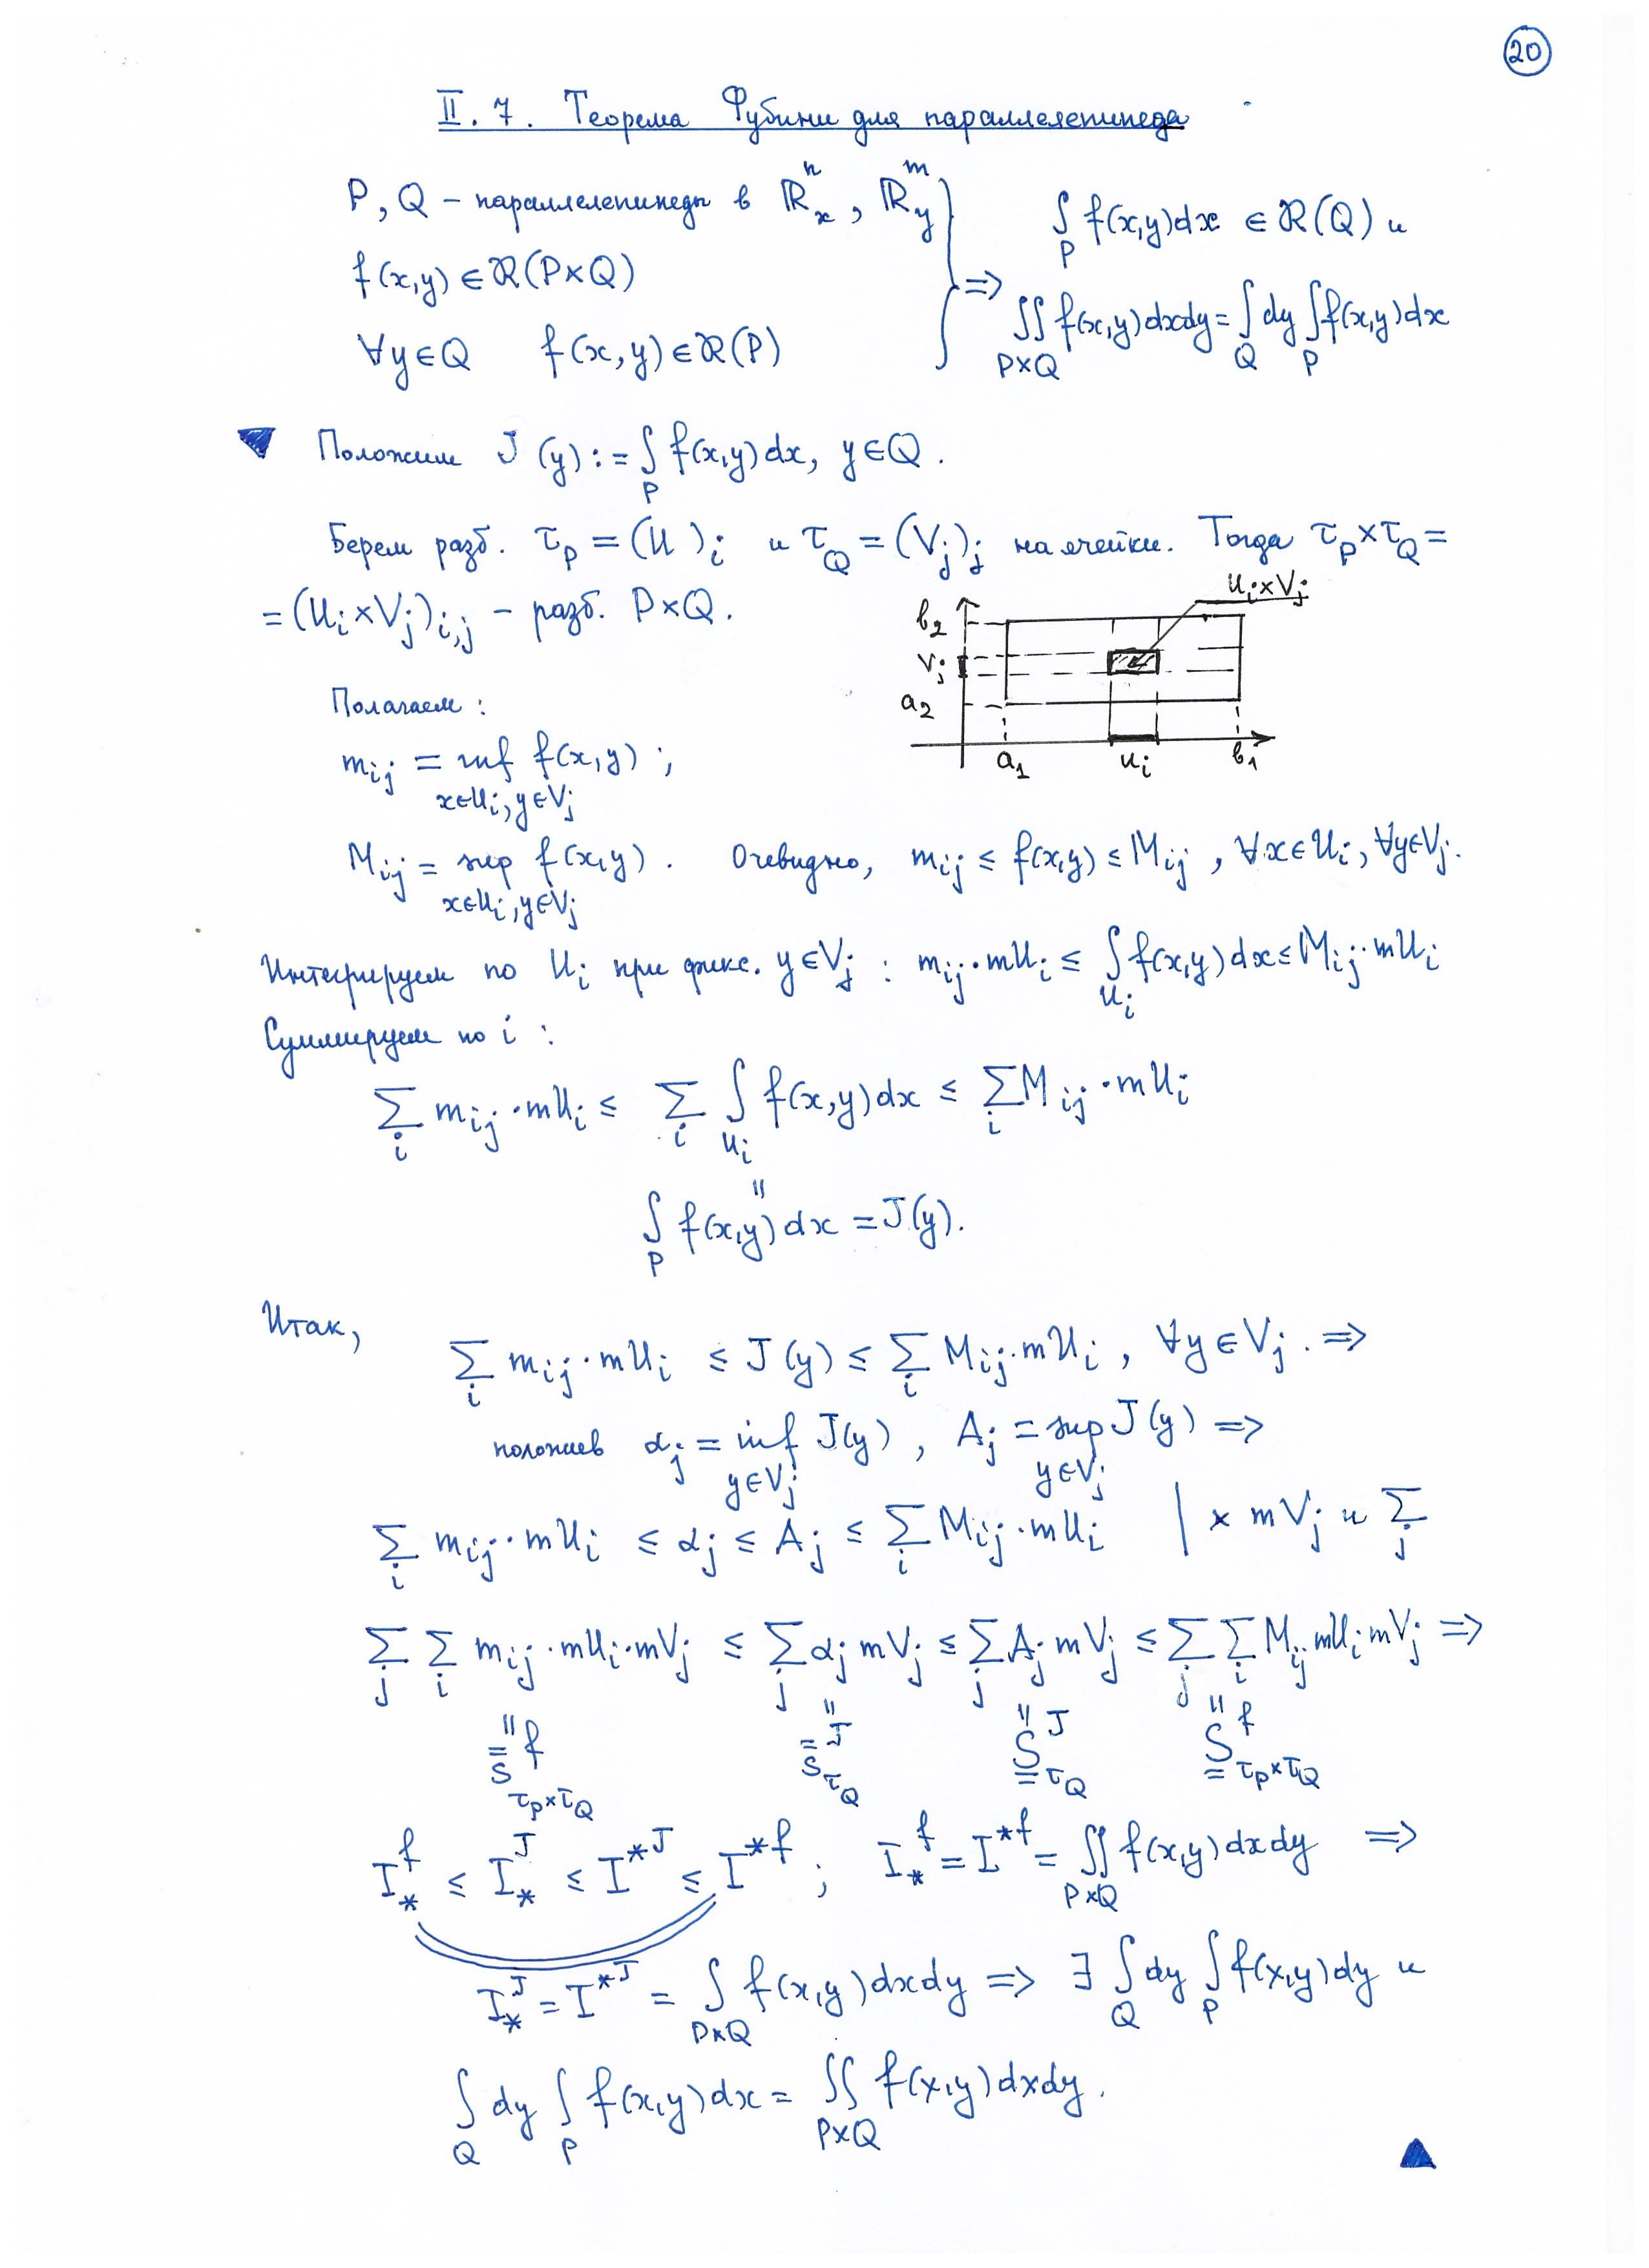 20
II. 7. Теорема Фубини для параллелепипеда
P, Q – параллелепипеды в ℝⁿₓ, ℝᵐ_y
f(x,y) ∈ ℛ(P×Q)
∀y∈Q f(x,y) ∈ ℛ(P)
} ⇒
∫_P f(x,y)dx ∈ ℛ(Q) и
∬_{P×Q} f(x,y)dxdy = ∫_Q dy ∫_P f(x,y)dx
Положим J(y) := ∫_P f(x,y)dx, y∈Q.
Берем разб. τ_P = (U )_i и τ_Q = (V_j)_j на ячейки. Тогда τ_P×τ_Q =
= (U_i×V_j)_{i,j} – разб. P×Q.
U_i×V_j
b₂
V_j
a₂
a₁ U_i b₁
Полагаем:
m_{ij} = inf_{x∈U_i, y∈V_j} f(x,y) ;
M_{ij} = sup_{x∈U_i, y∈V_j} f(x,y) . Очевидно, m_{ij} ≤ f(x,y) ≤ M_{ij} , ∀x∈U_i, ∀y∈V_j.
Интегрируем по U_i при фикс. y∈V_j : m_{ij}·mU_i ≤ ∫_{U_i} f(x,y)dx ≤ M_{ij}·mU_i
Суммируем по i :
∑_i m_{ij}·mU_i ≤ ∑_i ∫_{U_i} f(x,y)dx ≤ ∑_i M_{ij}·mU_i
=
∫_P f(x,y)dx = J(y).
Итак,
∑_i m_{ij}·mU_i ≤ J(y) ≤ ∑_i M_{ij}·mU_i , ∀y∈V_j. ⇒
положив α_j = inf_{y∈V_j} J(y) , A_j = sup_{y∈V_j} J(y) ⇒
∑_i m_{ij}·mU_i ≤ α_j ≤ A_j ≤ ∑_i M_{ij}·mU_i | × mV_j и ∑_j
∑_j ∑_i m_{ij}·mU_i·mV_j ≤ ∑_j α_j mV_j ≤ ∑_j A_j mV_j ≤ ∑_j ∑_i M_{ij} mU_i mV_j ⇒
= = = =
s̿^f_{τ_P×τ_Q} s̿^J_{τ_Q} S̳^J_{τ_Q} S̳^f_{τ_P×τ_Q}
I_*^f ≤ I_*^J ≤ I^{*J} ≤ I^{*f} ; I_*^f = I^{*f} = ∬_{P×Q} f(x,y)dxdy ⇒
I_*^J = I^{*J} = ∫_{P×Q} f(x,y)dxdy ⇒ ∃ ∫_Q dy ∫_P f(x,y)dy и
∫_Q dy ∫_P f(x,y)dx = ∬_{P×Q} f(x,y)dxdy.